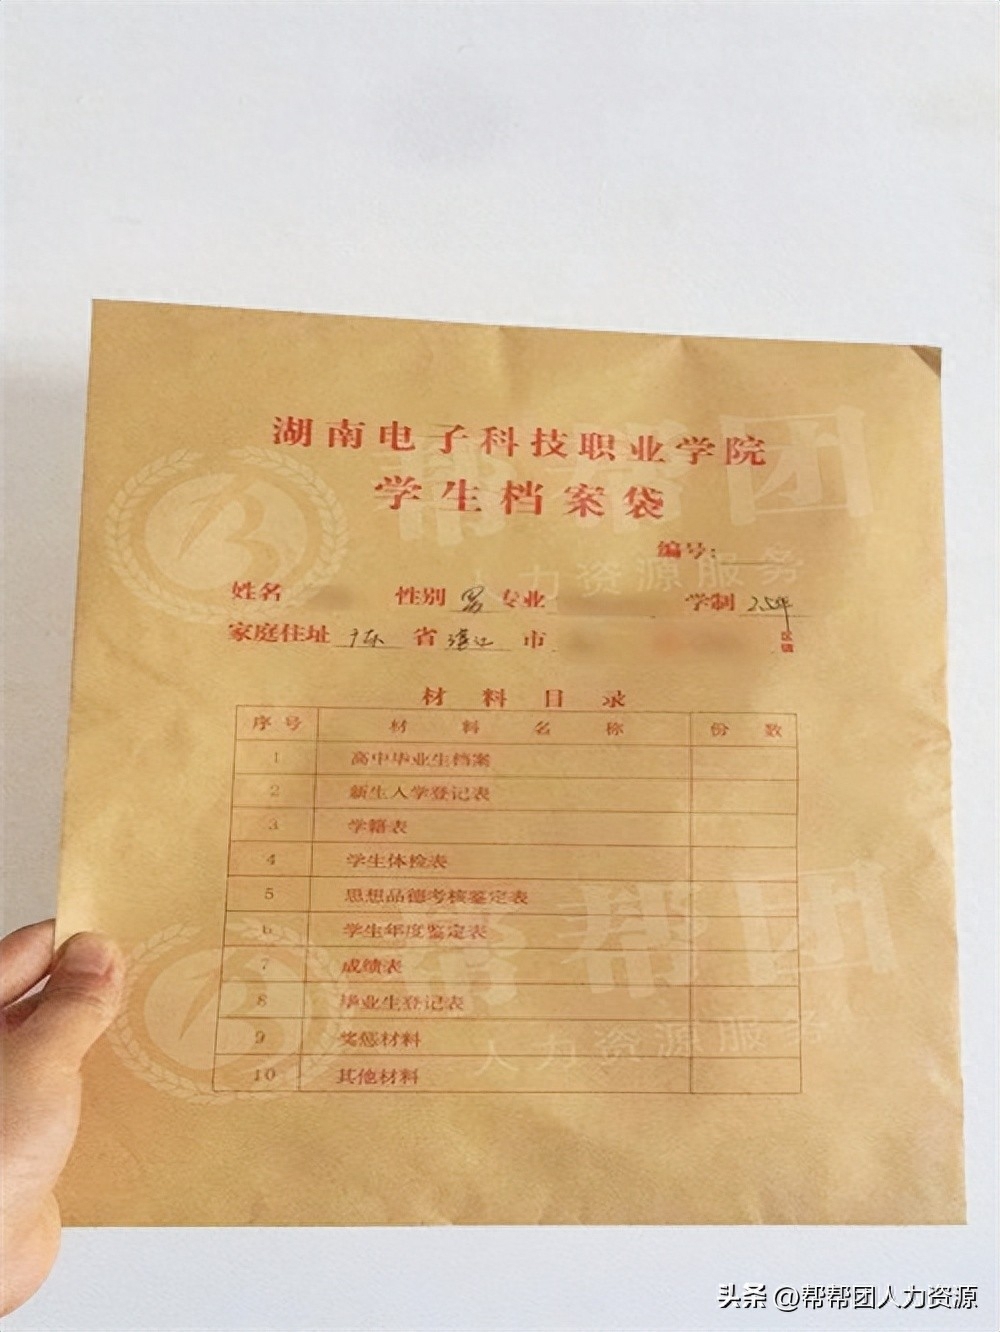 湖南电子科技职业学院
学生档案袋
编号:
姓名 性别 男 专业 学制 2.5年
家庭住址 广东 省 湛江 市 区镇
材料目录
序号 材料名称 份数
1 高中毕业生档案
2 新生入学登记表
3 学籍表
4 学生体检表
5 思想品德考核鉴定表
6 学生年度鉴定表
7 成绩表
8 毕业生登记表
9 奖惩材料
10 其他材料
帮帮团
人力资源服务
帮帮团
人力资源服务
头条 @帮帮团人力资源